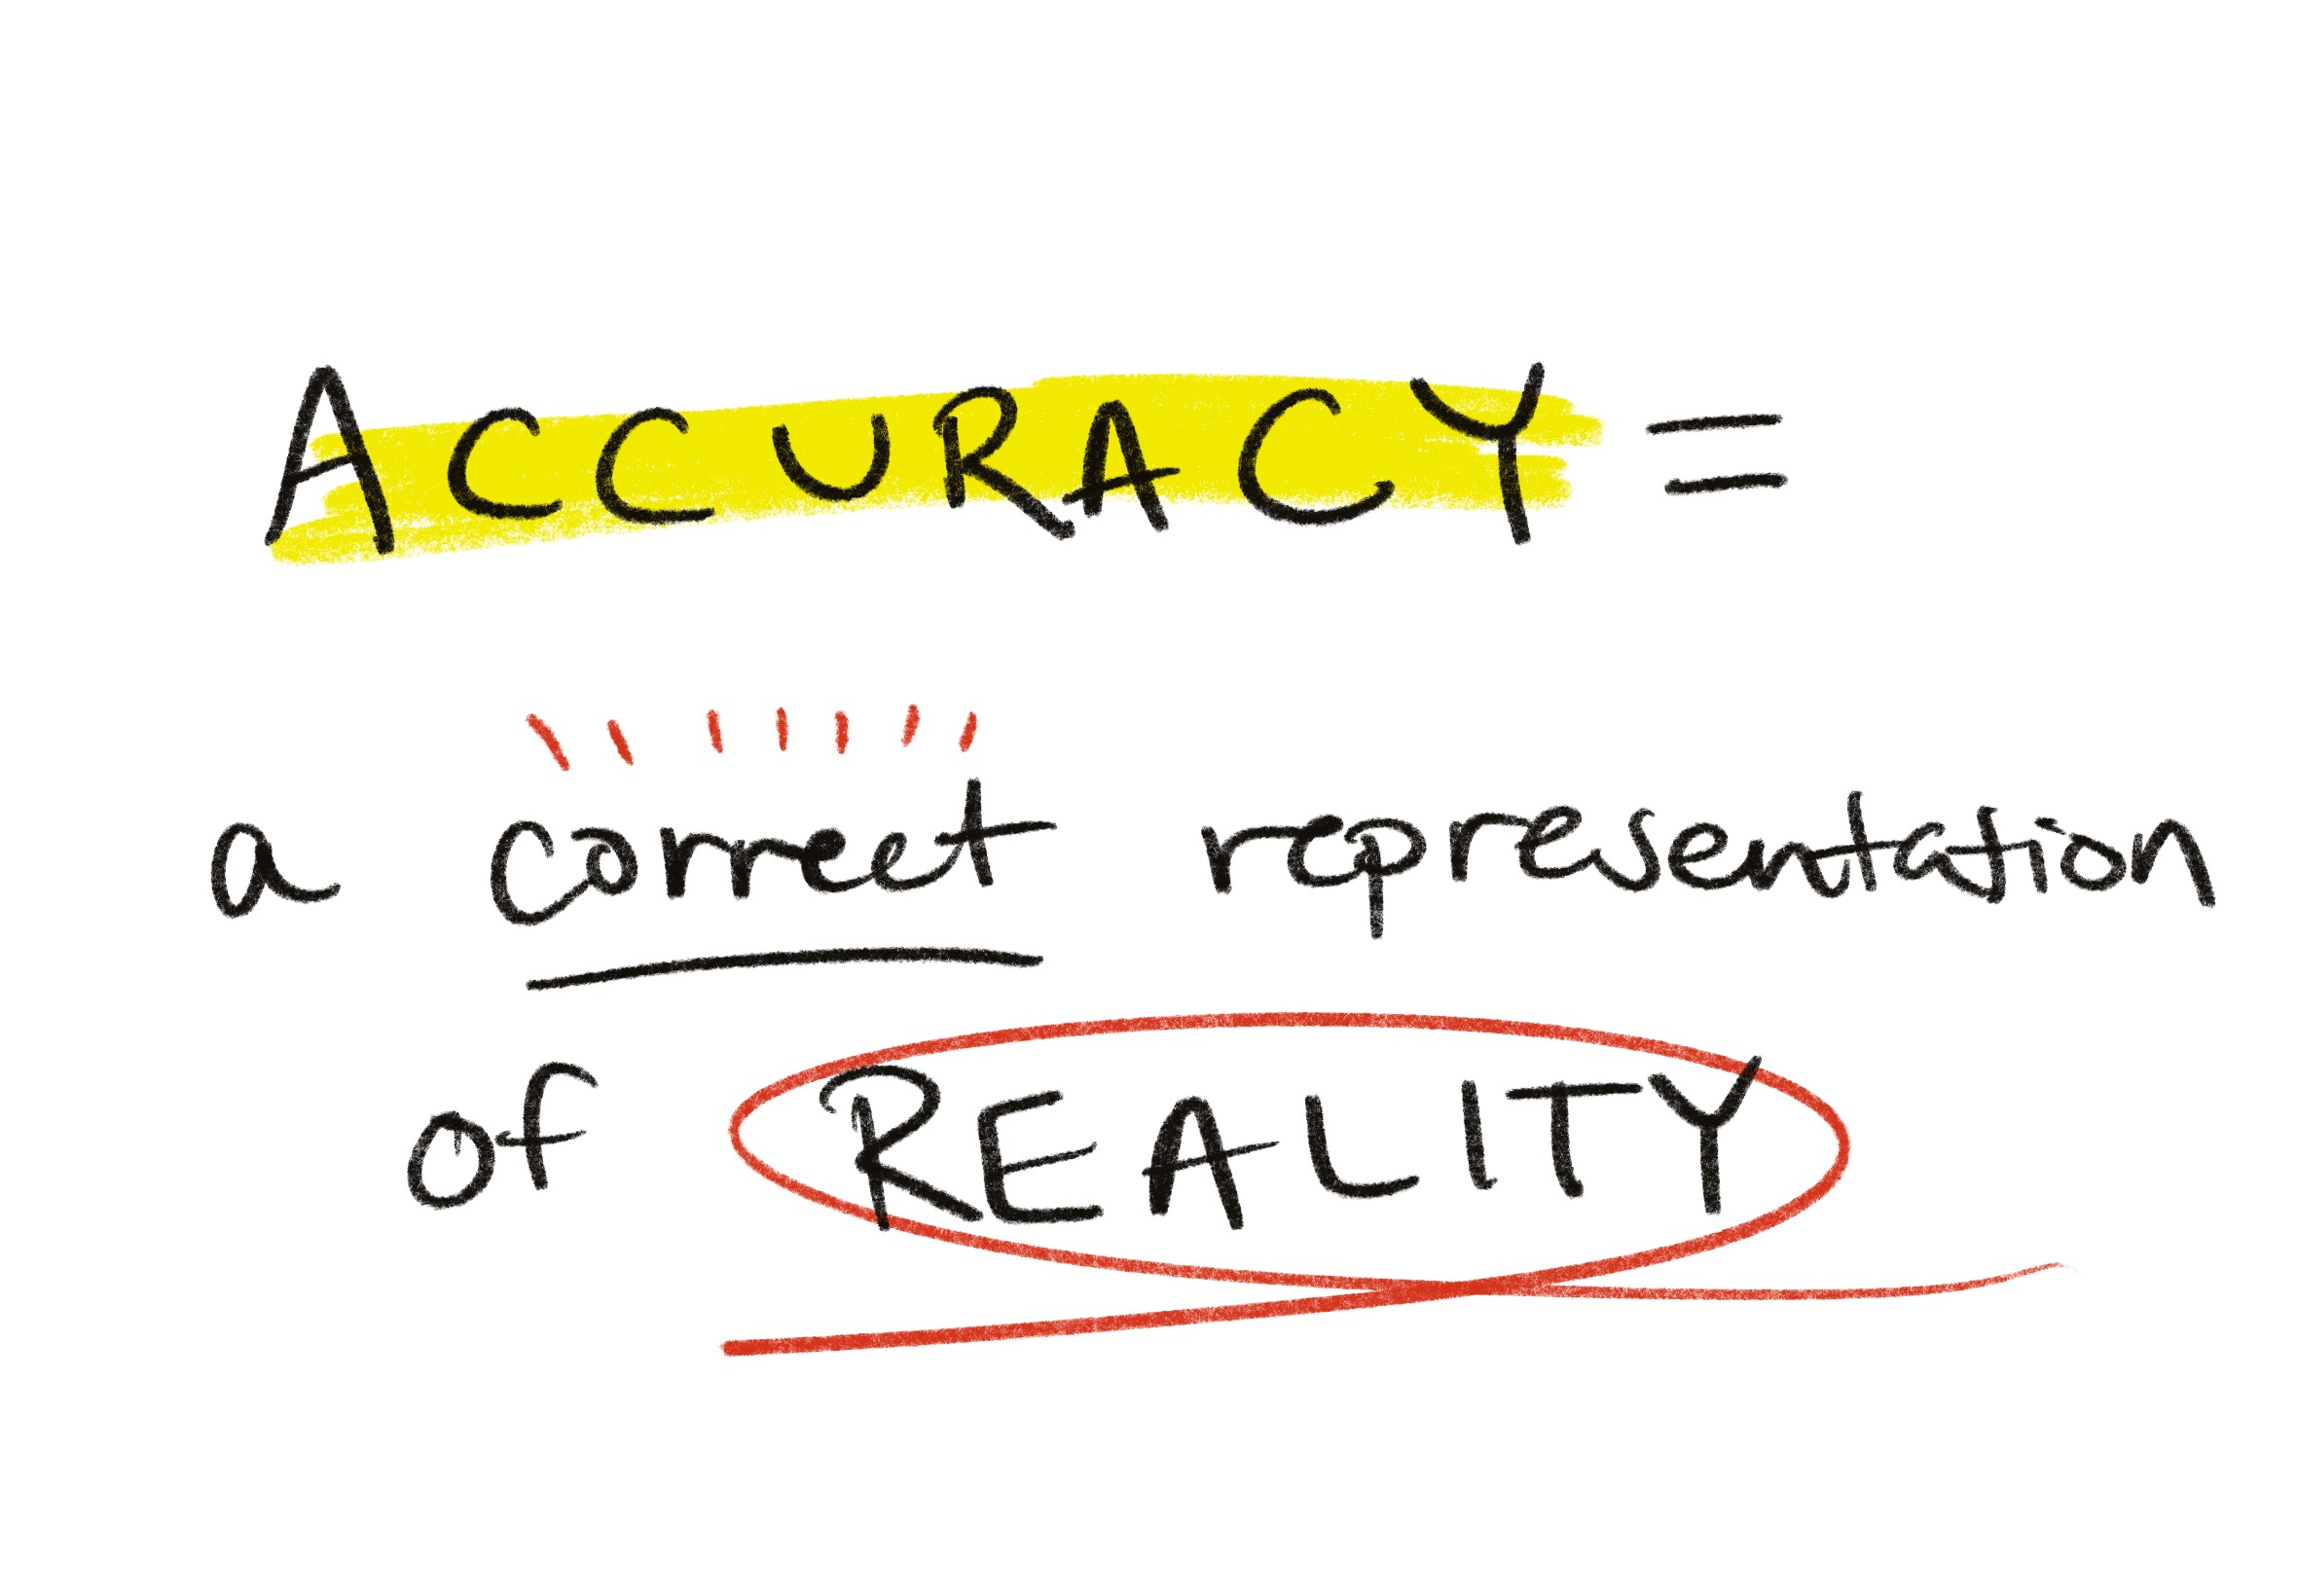 ACCURACY =
a correct representation
of REALITY